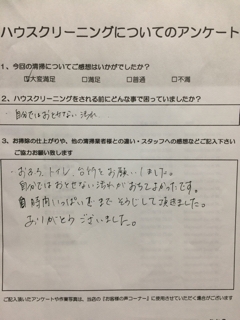 ハウスクリーニングについてのアンケート
1、今回の清掃についてご感想はいかがでしたか?
☑大変満足 □満足 □普通 □不満
2、ハウスクリーニングをされる前にどんな事で困っていましたか?
・自分ではおとせない汚れ
3、お掃除の仕上がりや、他の清掃業者様との違い・スタッフへの感想などご記入下さい
ご協力お願い致します
・おふろ、トイレ、台所をお願いしました。
自分ではおとせない汚れがおちてよかったです。
時間いっぱいまで そうじして頂きました。
ありがとうございました。
ご記入頂いたアンケートや作業写真は、当店の『お客様の声コーナー』に使用させていただく場合がございます